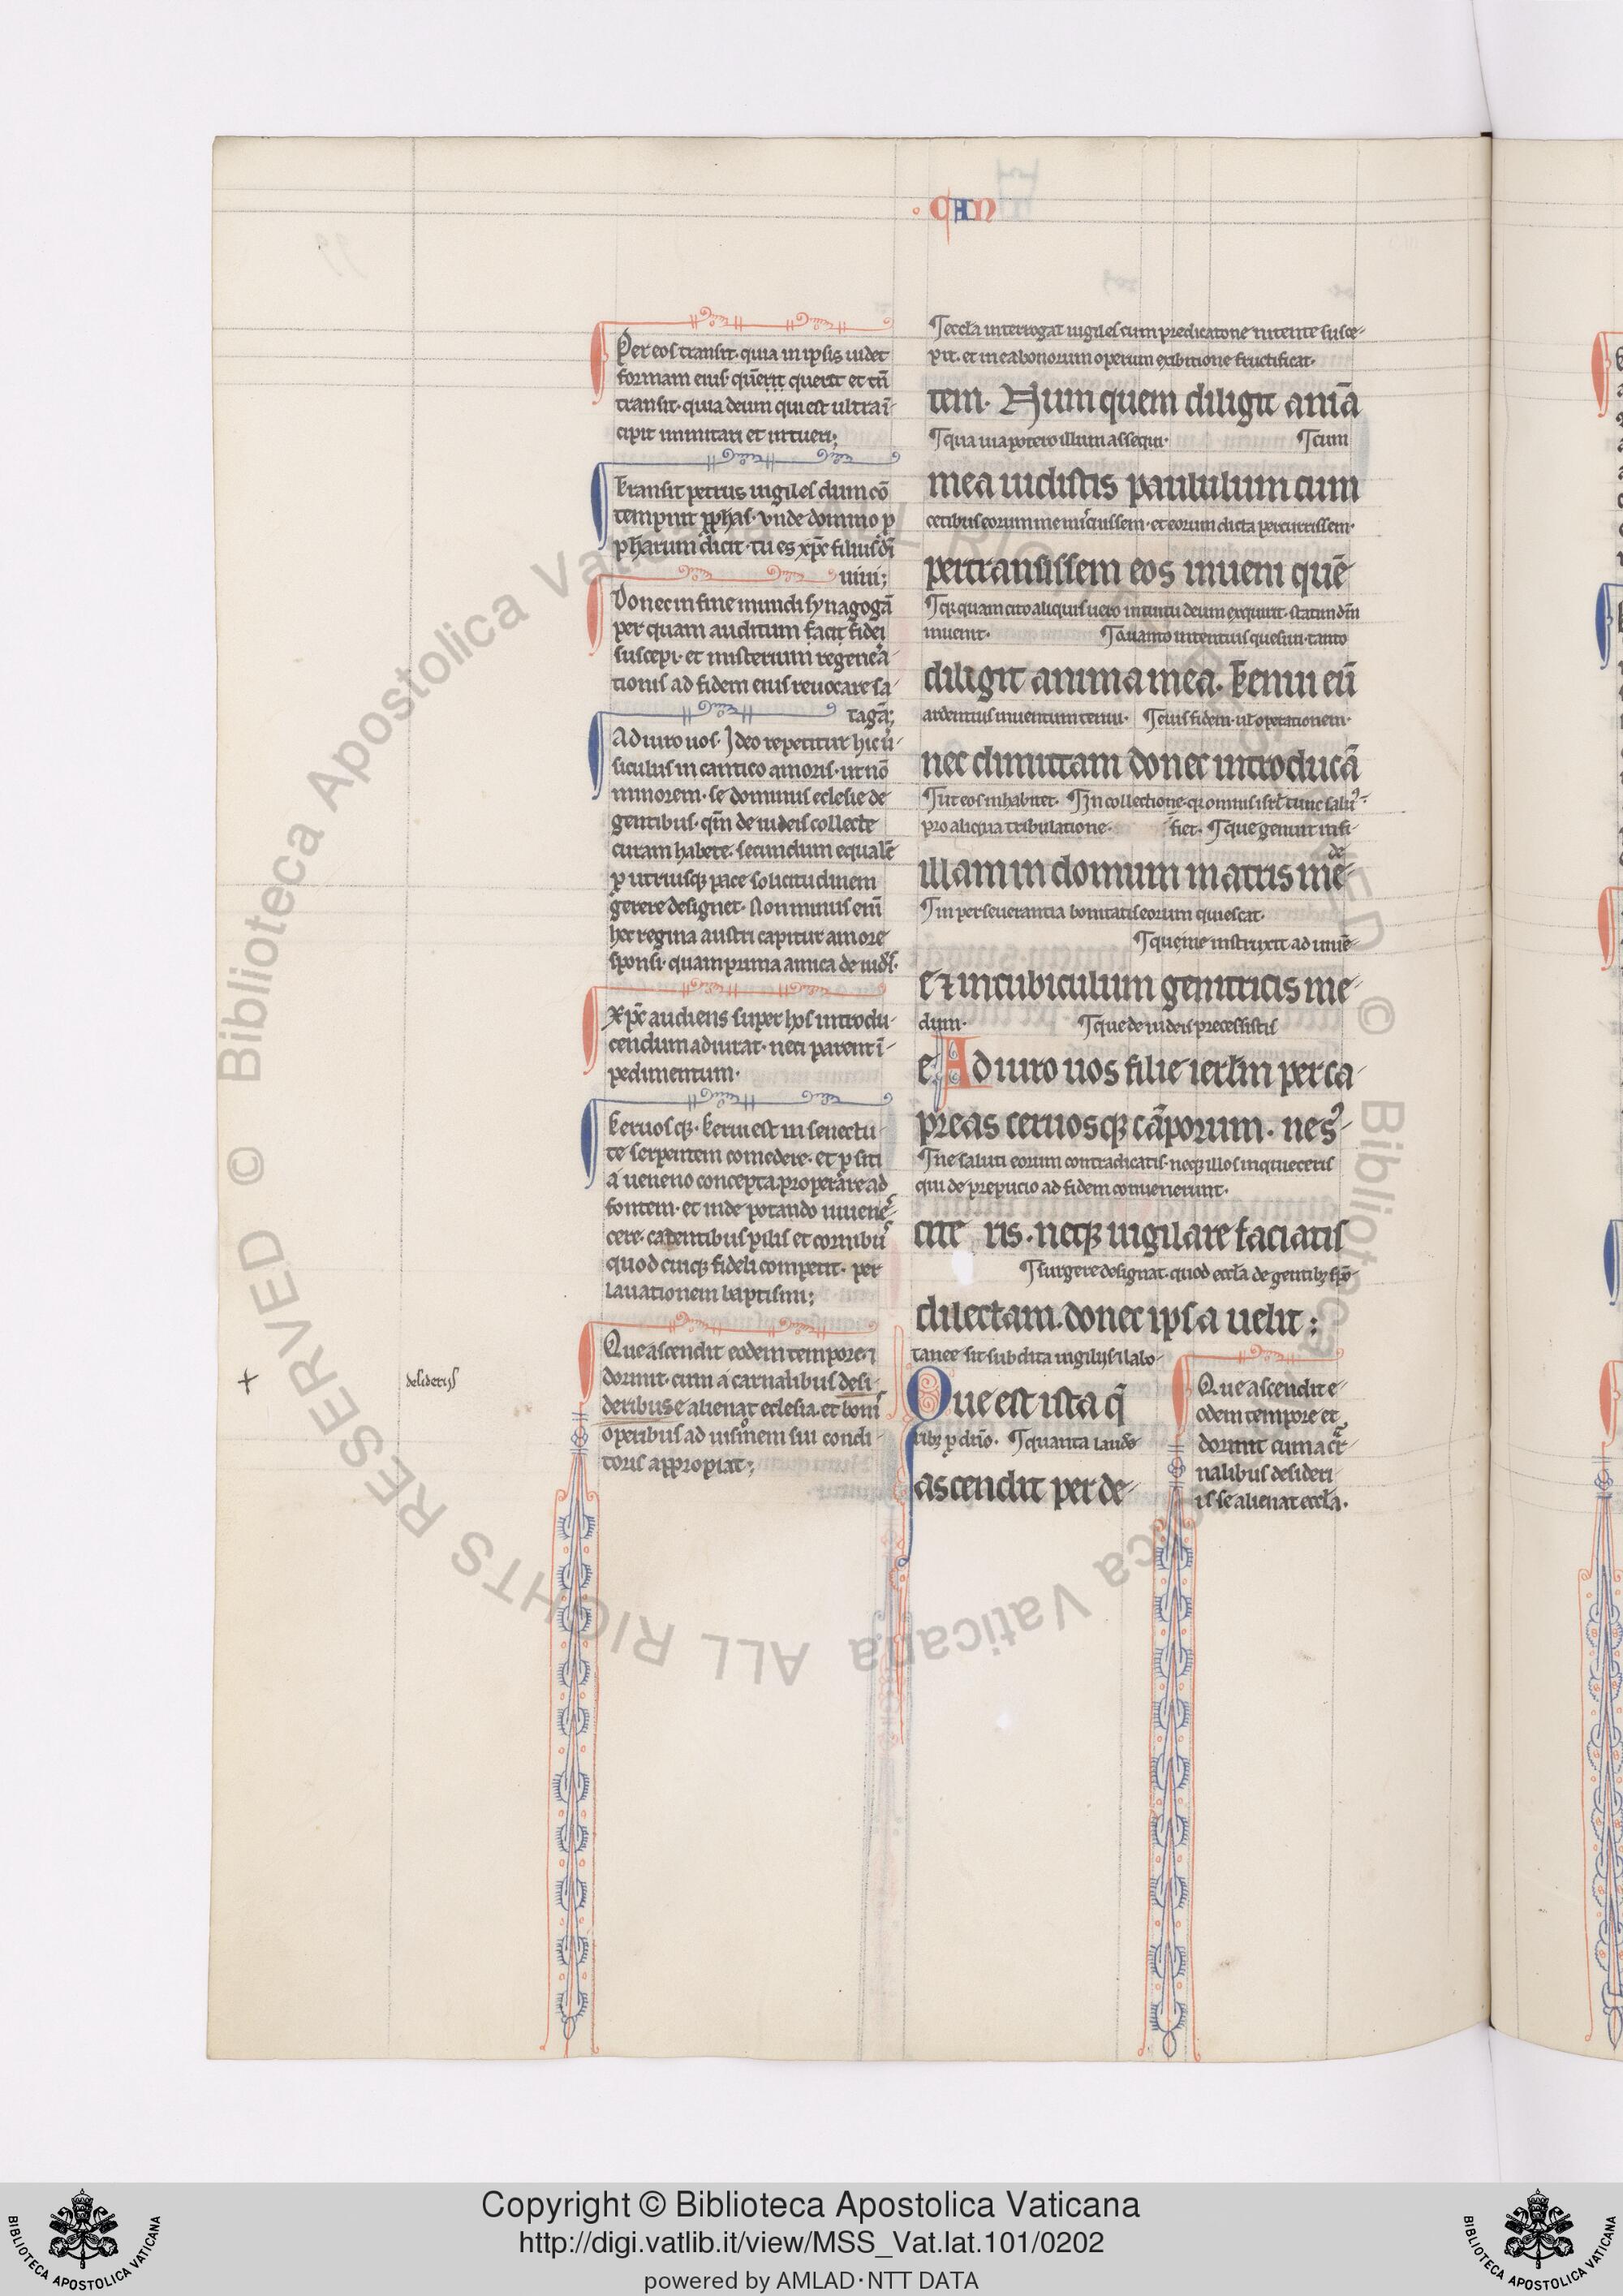 CAN
Per eos transit. quia in ipsis uidet
formam eius. querit querit et tñ
transit. quia deum qui est ultra ī
cipit immitari et intueri;
Transit petrus uigiles dum cō
tempnit pphas. vnde domino p
pharum dicit. tu es xp̄c filius dī
uiui;
Donec in fine mundi synagogā
per quam auditum facit fidei
suscepi. et misterium regenera
tionis ad fidem eius reuocare sa
tagā;
Adiuro uos. Ideo repetitur hic ů
siculus in cantico amoris. ut nō
minorem. se dominus eclesie de
gentibus. qm̄ de iudeis collecte
curam habere. secundum equalē
p utriusq; pace solicitudinem
gerere designet. Non minus enī
hec regina austri capitur amore
sponsi. quam prima amica de iudis.
xp̄c audiens super hos introdu
cendum adiurat. neci parent ī
pedimentum.
Ceruosq;. Cerui est in senectu
te serpentem comedere. et p siti
a ueneno concepta. properare ad
fontem. et inde potando iuuene
cere. cadentibus pilis et cornibus
quod cuiq; fideli competit. per
lauationem baptismi;
Que ascendit eodem tempore ⁊
dormit. cum a carnalibus desi
deribus e alienat eclesia. et bonis
operibus ad uisionem sui condi
toris appropiat;
desiderijs
¶ eccl̄a interrogat uigiles cum predicatione nitente susce
pit. et in ea bonorum operum exibitione fructificat.
tem. Num quem diligit anīa
¶ qua uia potero illum assequi. ¶ cum
mea uidistis paululum cum
cetibus eorum me miscuissem. et eorum dicta percurrissem.
pertransissem eos inueni quē
¶ qr quam cito aliquis uero intuitu deum exquirit. statim dm̄
inuenit. ¶ Quanto intentius quesiui. tanto
diligit anima mea. Tenui eū
ardentius inuentum tenui. ¶ eius fidem. ul' operationem.
nec dimittam donec introducā
¶ ut eos inhabitet. ¶ In collectione. qr omnis isrl' tunc saluus
pro aliqua tribulatione. fiet. ¶ que genuit in fi
de
illam in domum matris me
¶ in perseuerantia bonitatis eorum quiescat.
¶ que me instruxit ad unuē
e ⁊ in cubiculum genitricis me
dum. ¶ que de iudeis precessistis
e Adiuro uos filie ierl'm per ca
preas ceruosq; cāporum. ne s
¶ ne saluti eorum contradicatis. neq; illos inquietetis
qui de prepucio ad fidem conuenerunt.
cite ris. neq; uigilare faciatis
¶ surgere designat. quod eccl̄a de gentib; spō
dilectam. donec ipsa uelit;
tanee sit subdita uigilijs ⁊ labo
Que est ista q̄
rib; p dnō. ¶ quanta laude
ascendit per de
Que ascendit e
odem tempore et
dormit cum a car
nalibus desideri
is se alienat eccl̄a.
Copyright © Biblioteca Apostolica Vaticana
http://digi.vatlib.it/view/MSS_Vat.lat.101/0202
powered by AMLAD·NTT DATA
BIBLIOTECA APOSTOLICA VATICANA
BIBLIOTECA APOSTOLICA VATICANA
© Biblioteca Apostolica Vaticana ALL RIGHTS RESERVED © Biblioteca Apostolica Vaticana ALL RIGHTS RESERVED